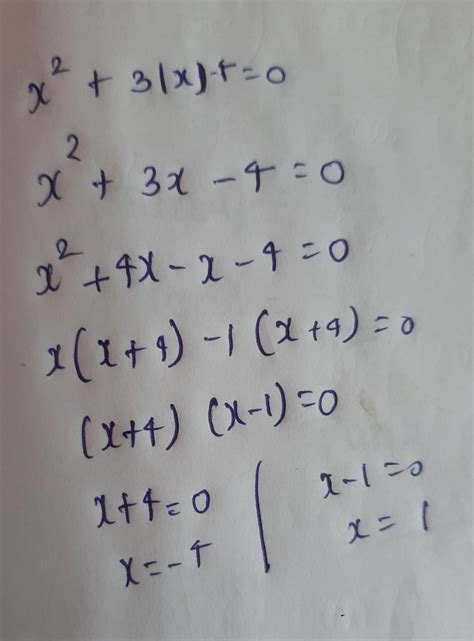 x² + 3|x|-4=0
x² + 3x - 4 = 0
x² + 4x - x - 4 = 0
x(x+4) -1 (x+4) = 0
(x+4) (x-1) = 0
x+4=0 | x-1=0
x=-4 | x=1